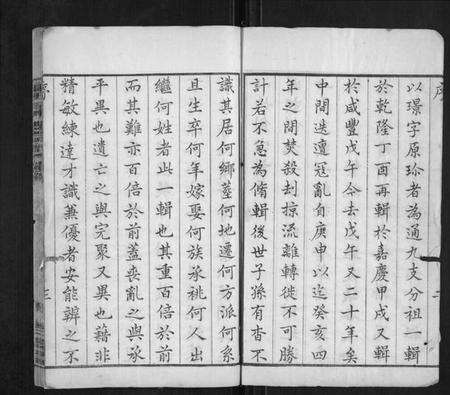 序
以璟字原珍者為通九支分祖一輯
於乾隆丁酉再輯於嘉慶甲戌又輯
於咸豐戊午今去戊午又二十年矣
中間迭遭寇亂自庚申以迄癸亥四
年之間焚殺刦掠流離轉徙不可勝
計若不急為脩輯後世子孫有杳不
識其居何鄉塟何地遷何方派何系
且生卒何年嫁娶何族承祧何人出
繼何姓者此一輯也其重百倍於前
而其難亦百倍於前蓋喪亂之與承
平異也遺亡之與完聚又異也藉非
精敏練達才識兼優者安能辨之不
序
三